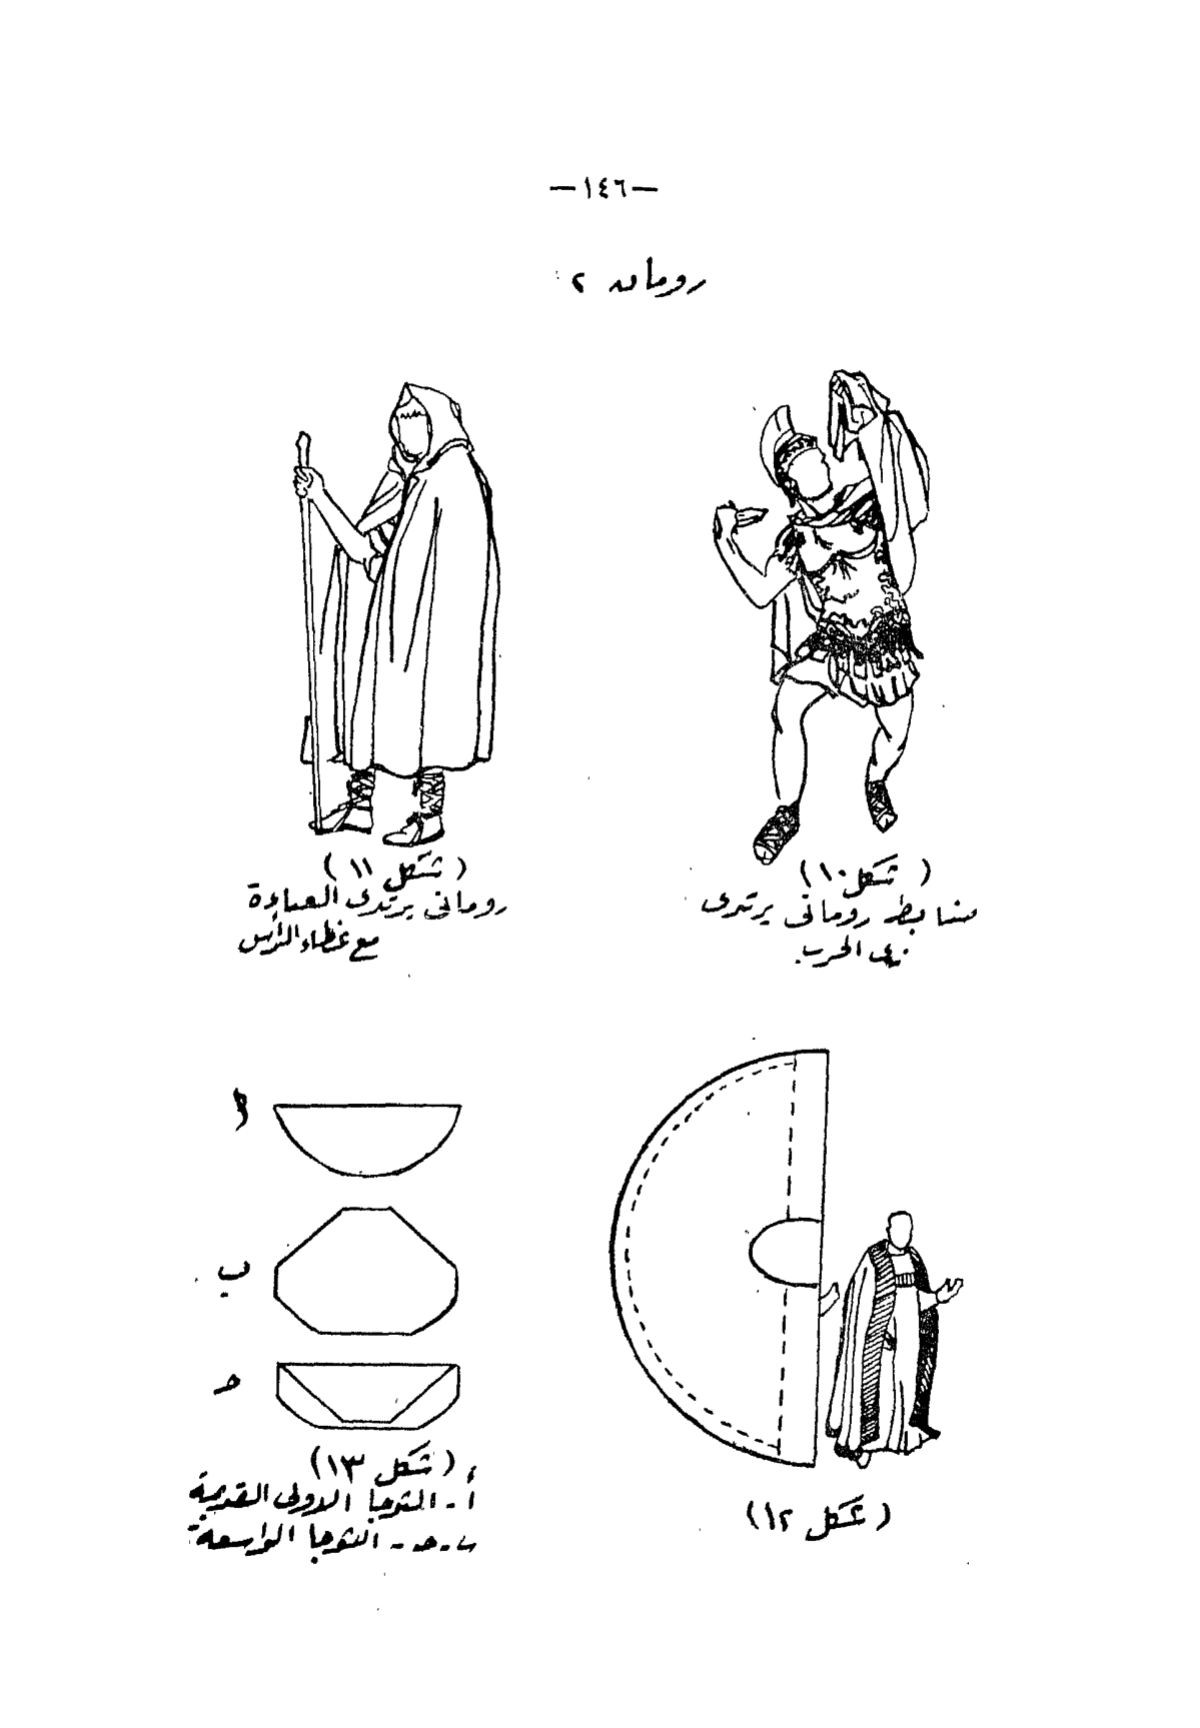 —١٤٦—
رومان ٢
(شكل ١٠)
ضابط رومانى يرتدى
زى الحرب
(شكل ١١)
رومانى يرتدى العباءة
مع غطاء الرأس
(شكل ١٢)
أ
ب
حـ
(شكل ١٣)
أ - التوجا الاولى القديمة
ب - حـ - التوجا الواسعة